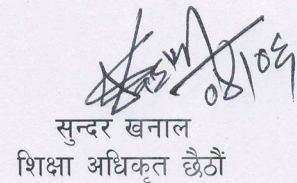 ०४।०६
सुन्दर खनाल
शिक्षा अधिकृत छैठौं